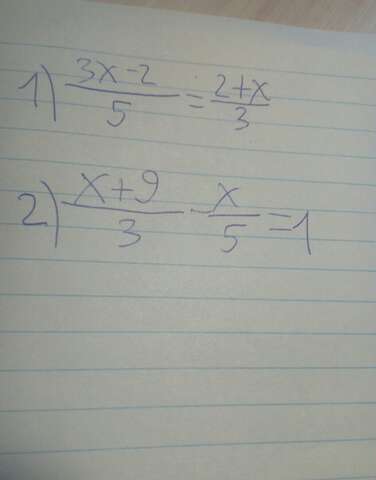 1) (3x-2)/5 = (2+x)/3
2) (x+9)/3 - x/5 = 1